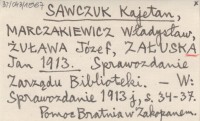 SAWCZUK Kajetan,
MARCZAKIEWICZ Władysław,
ŻUŁAWA Józef, ZAŁUSKA
Jan 1913. Sprawozdanie
Zarządu Biblioteki. – W:
Sprawozdanie 1913 j, s. 34-37.
Pomoc Bratnia w Zakopanem.